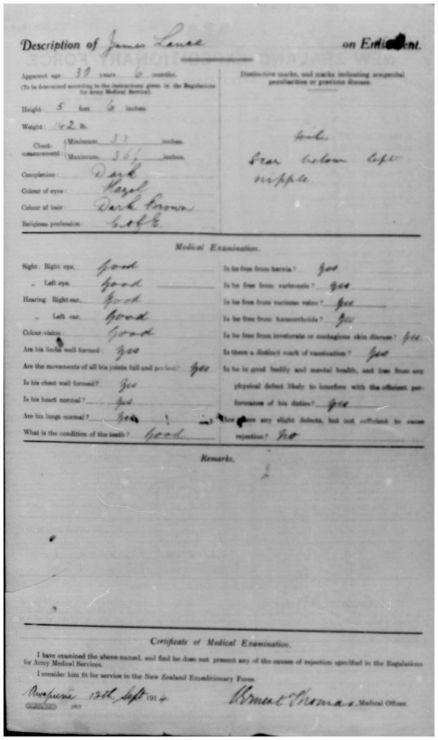 Description of James Lance on Enlistment.
Apparent age: 30 years 6 months.
(To be determined according to the instructions given in the Regulations for Army Medical Service).
Height: 5 feet 6 inches.
Weight: 142 lb.
Chest measurement: { Minimum, 33 inches.
Maximum, inches.
Complexion: Dark
Colour of eyes: Hazel
Colour of hair: Dark Brown
Religious profession: C of E
Distinctive marks, and marks indicating congenital
peculiarities or previous disease.
Scar below left
nipple
Medical Examination.
Sight: Right eye, Good
„ Left eye, Good
Hearing: Right ear, Good
„ Left ear, Good
Colour vision: Good
Are his limbs well formed? Yes
Are the movements of all his joints full and perfect? Yes
Is his chest well formed? Yes
Is his heart normal? Yes
Are his lungs normal? Yes
What is the condition of the teeth? Good
Is he free from hernia? Yes
Is he free from varicocele? Yes
Is he free from varicose veins? Yes
Is he free from hæmorrhoids? Yes
Is he free from inveterate or contagious skin disease? Yes
Is there a distinct mark of vaccination? Yes
Is he in good bodily and mental health, and free from any
physical defect likely to interfere with the efficient per-
formance of his duties? Yes
Are there any slight defects, but not sufficient to cause
rejection? No
Remarks.
Certificate of Medical Examination.
I have examined the above-named, and find he does not present any of the causes of rejection specified in the Regulations
for Army Medical Services.
I consider him fit for service in the New Zealand Expeditionary Force.
Awapuni 12th Sept 1914 Ernest Thomas Medical Officer.